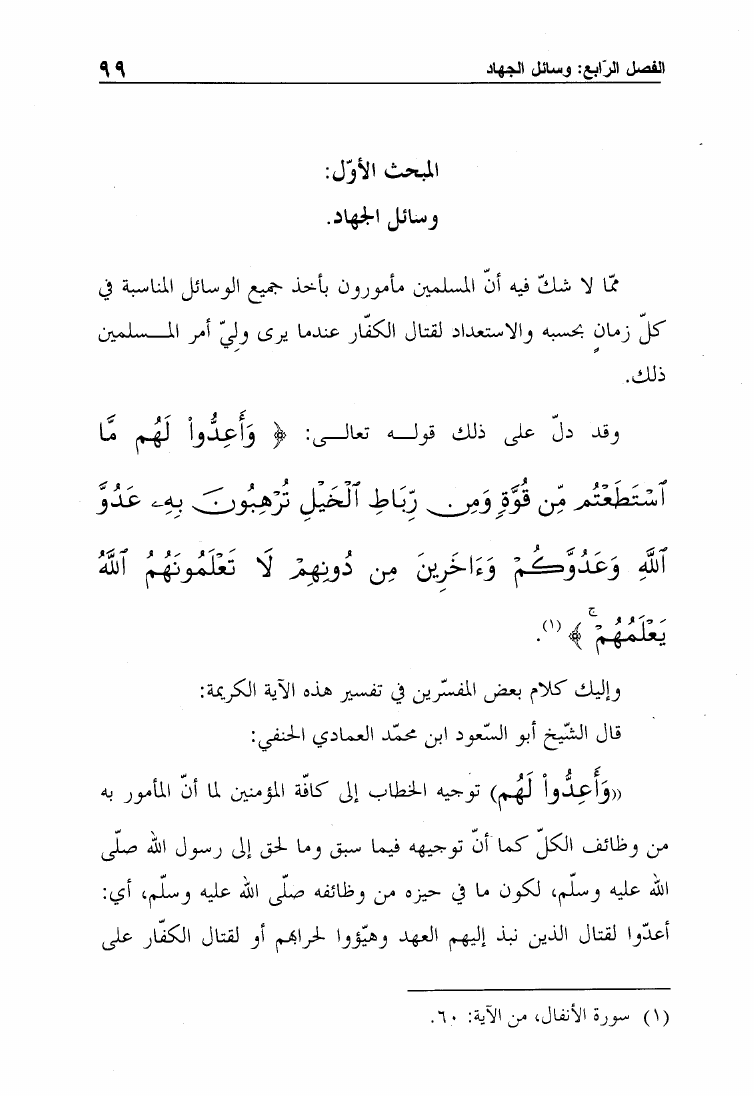 الفصل الرّابع: وسائل الجهاد ٩٩
المبحث الأوّل:
وسائل الجهاد.
ممّا لا شكّ فيه أنّ المسلمين مأمورون بأخذ جميع الوسائل المناسبة في
كلّ زمانٍ بحسبه والاستعداد لقتال الكفّار عندما يرى وليّ أمر المسلمين
ذلك.
وقد دلّ على ذلك قوله تعالى: ﴿ وَأَعِدُّواْ لَهُم مَّا
ٱسْتَطَعْتُم مِّن قُوَّةٍ وَمِن رِّبَاطِ ٱلْخَيْلِ تُرْهِبُونَ بِهِۦ عَدُوَّ
ٱللَّهِ وَعَدُوَّكُمْ وَءَاخَرِينَ مِن دُونِهِمْ لَا تَعْلَمُونَهُمُ ٱللَّهُ
يَعْلَمُهُمْ ۚ ﴾ (١).
وإليك كلام بعض المفسّرين في تفسير هذه الآية الكريمة:
قال الشّيخ أبو السّعود ابن محمّد العمادي الحنفي:
((وَأَعِدُّواْ لَهُم) توجيه الخطاب إلى كافّة المؤمنين لما أنّ المأمور به
من وظائف الكلّ كما أنّ توجيهه فيما سبق وما لحق إلى رسول الله صلّى
الله عليه وسلّم، لكون ما في حيزه من وظائفه صلّى الله عليه وسلّم، أي:
أعدّوا لقتال الذين نبذ إليهم العهد وهيّؤوا لحرابهم أو لقتال الكفّار على
(١) سورة الأنفال، من الآية: ٦٠.